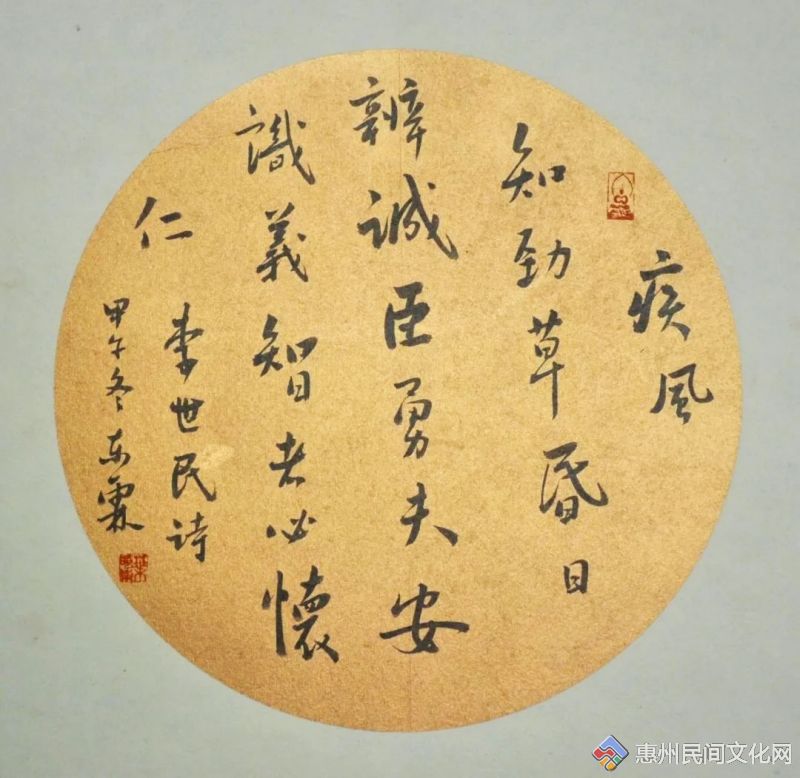 疾風
知勁草昏日
辨誠臣勇夫安
識義智者必懷
仁
李世民詩
甲午冬东霖
惠州民间文化网